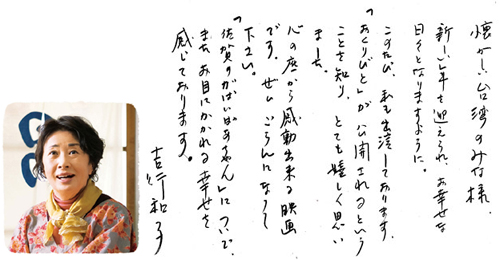 懐かしい台湾のみな様、
新しい年を迎えられ、お幸せな
日々となりますように。
このたび、私も出演しております、
「おくりびと」が公開されるという
ことを知り、とても嬉しく思い
ました。
心の底から感動出来る映画
です。ぜひごらんになって
下さい。
「佐賀のがばいばあちゃん」についで、
またお目にかかれる幸せを
感じております。
吉行和子